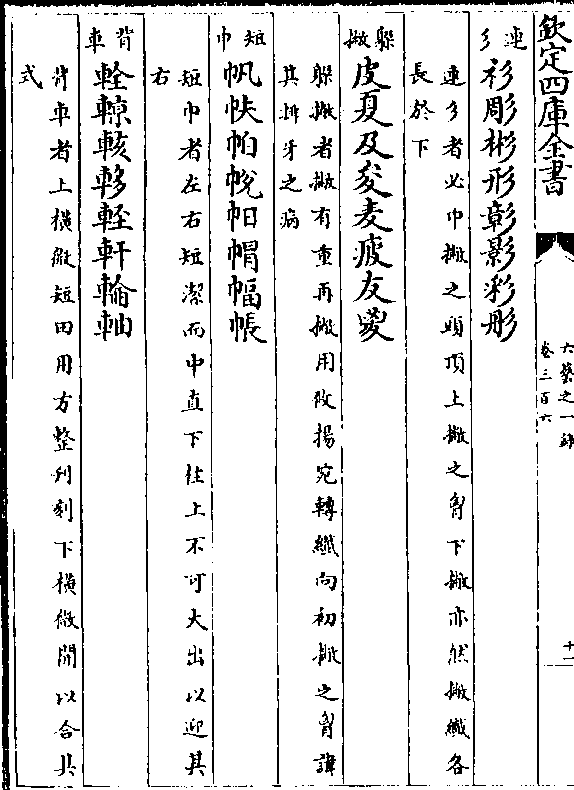 欽定四庫全書
六藝之一錄
卷三百六
十一
連彡
衫彫彬形彰影彩彤
連彡者必中撇之頭頂上撇之胷下撇亦然撇纎各
長於下
躲撇
皮夏及夋麦疲友
躲撇者撇有重再撇用攸揚宛轉纎向初撇之胷諱
其排牙之病
短巾
帆帙帕帨帽幅帳
短巾者左右短潔而中直下往上不可大出以迎其
右
背車
輇輬輆軽軒輪軸
背車者上橫微短田用方整刋刻下橫微開以合其
式